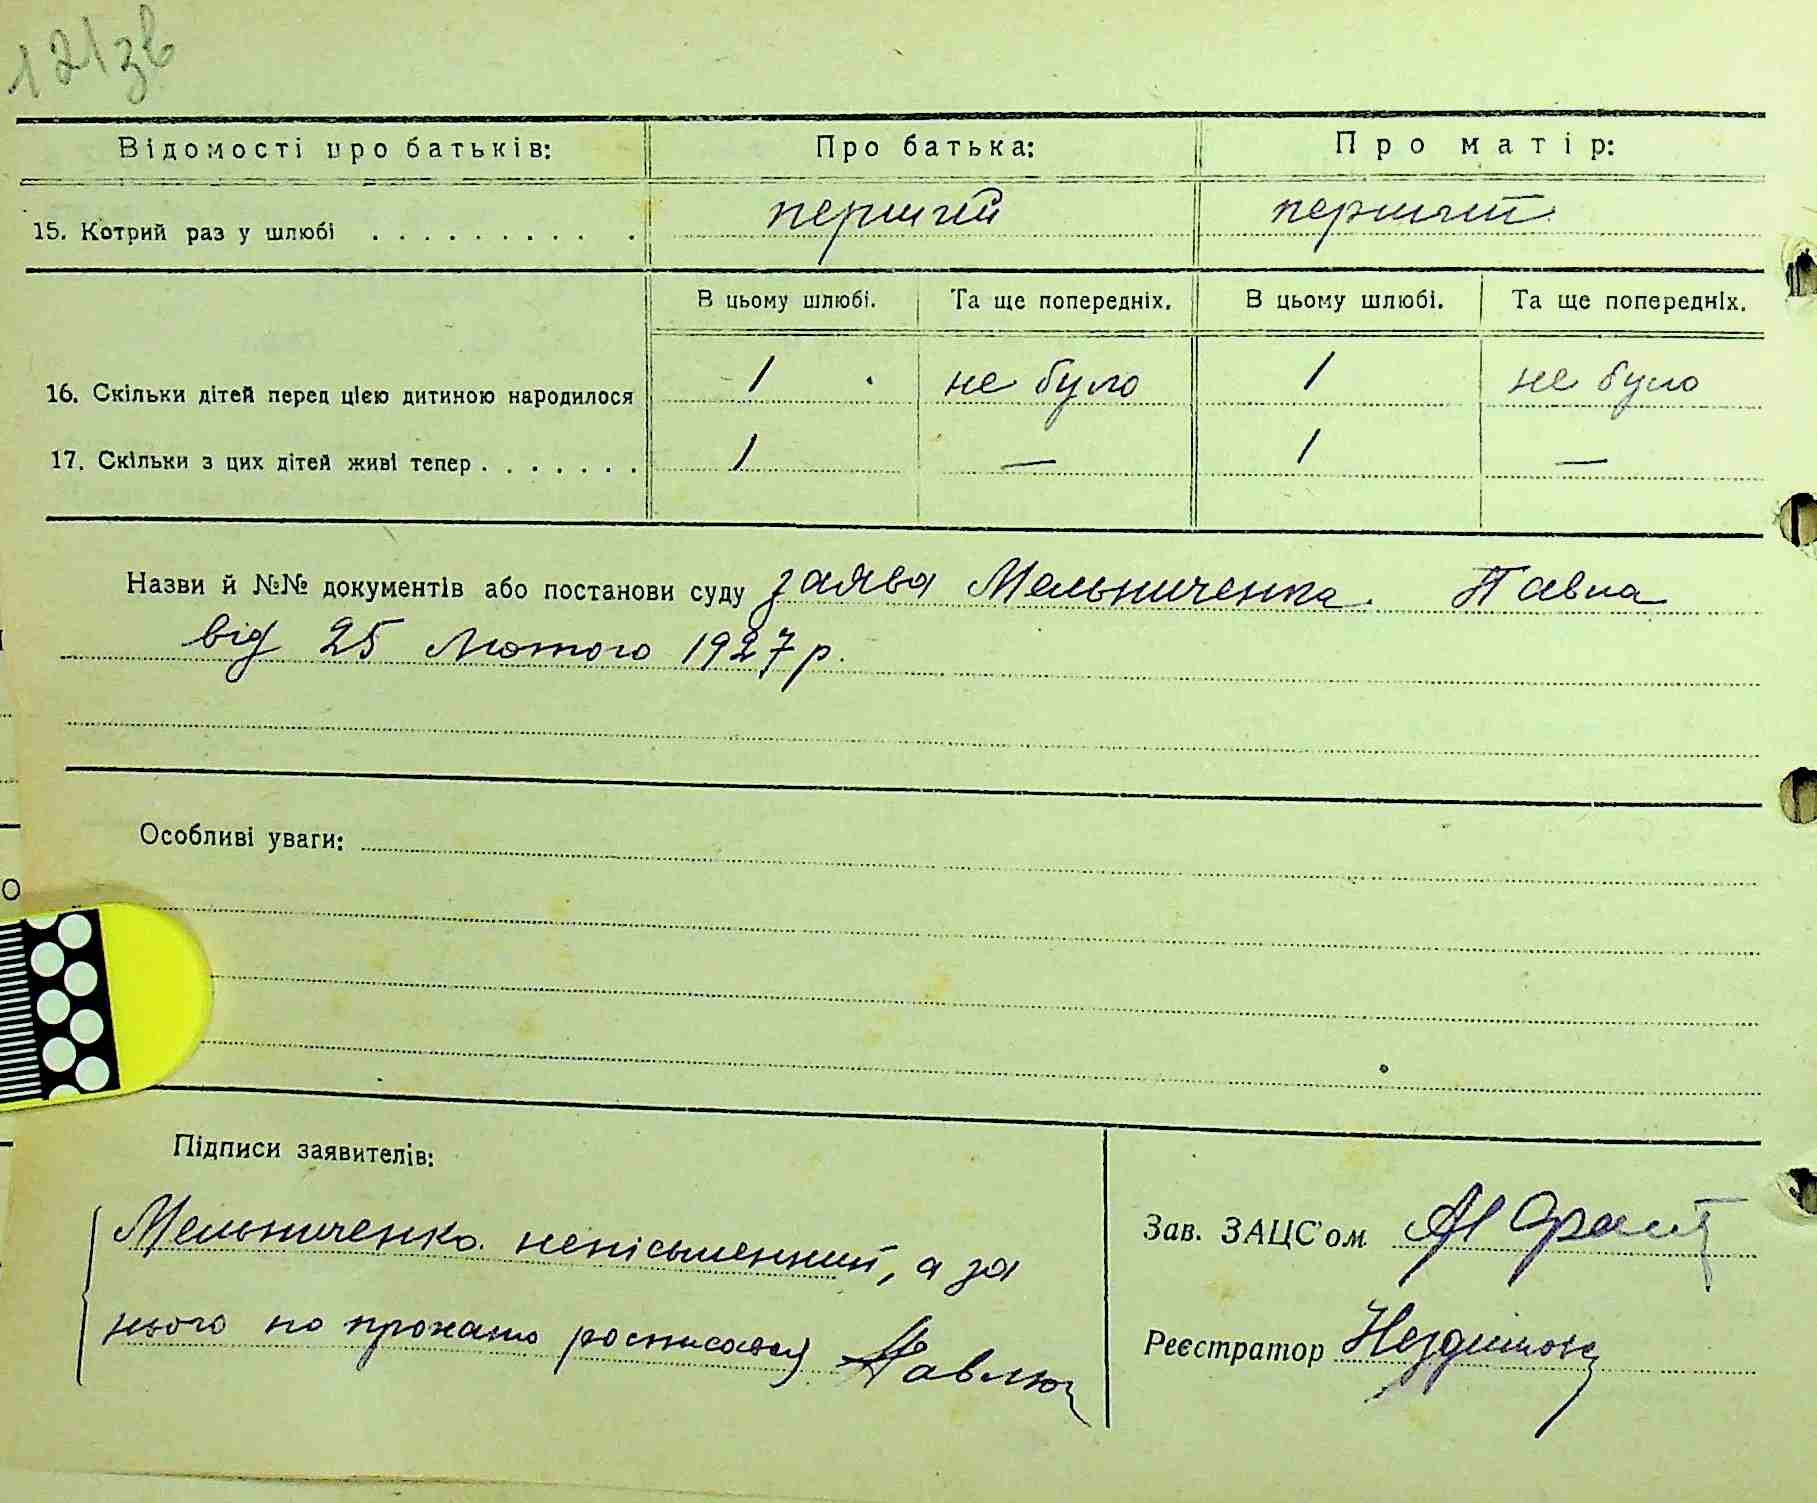 121зв
Відомості про батьків: Про батька: Про матір:
15. Котрий раз у шлюбі . . . . . . . . . . перший перший
В цьому шлюбі. Та ще попередніх. В цьому шлюбі. Та ще попередніх.
16. Скільки дітей перед цією дитиною народилося 1 не було 1 не було
17. Скільки з цих дітей живі тепер . . . . . . . 1 — 1 —
Назви й №№ документів або постанови суду заява Мельниченка Павла
від 25 Лютого 1927 р.
Особливі уваги:
Підписи заявителів:
Мельниченко непісьменний, а за
нього по проханю росписався
Зав. ЗАЦС'ом
Реєстратор